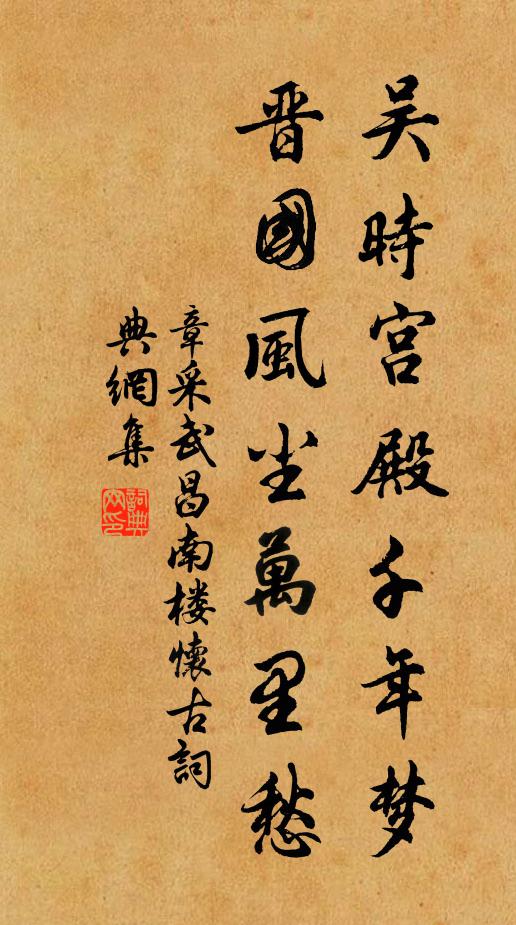 吴時宫殿千年梦
晋國風尘萬里愁
章采武昌南楼懷古詞
典網集
詞典網印